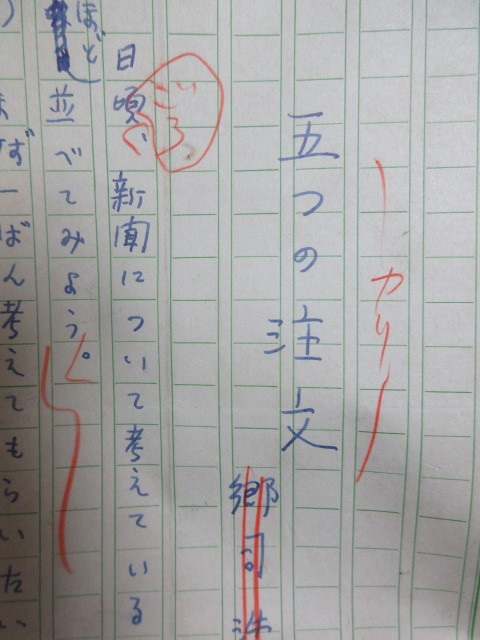 カリ
五つの注文
郷司
ごろ
日頃、新聞について考えている
ほど
並べてみよう。
まず一ばん考えてもらいたい